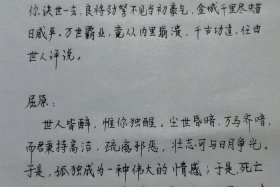 你决世一去，良将劲弩不见当初豪气，金城千里尽失昔
日威严，万世霸业，竟从内里崩溃，千古功过，任由
世人评说。
屈原：
世人皆醉，惟你独醒。尘世昏暗，万马齐喑，
而君秉持高洁，劲离邪恶，壮志可与日月争光。
于是，孤独成为一种伟大的情感；于是，死亡